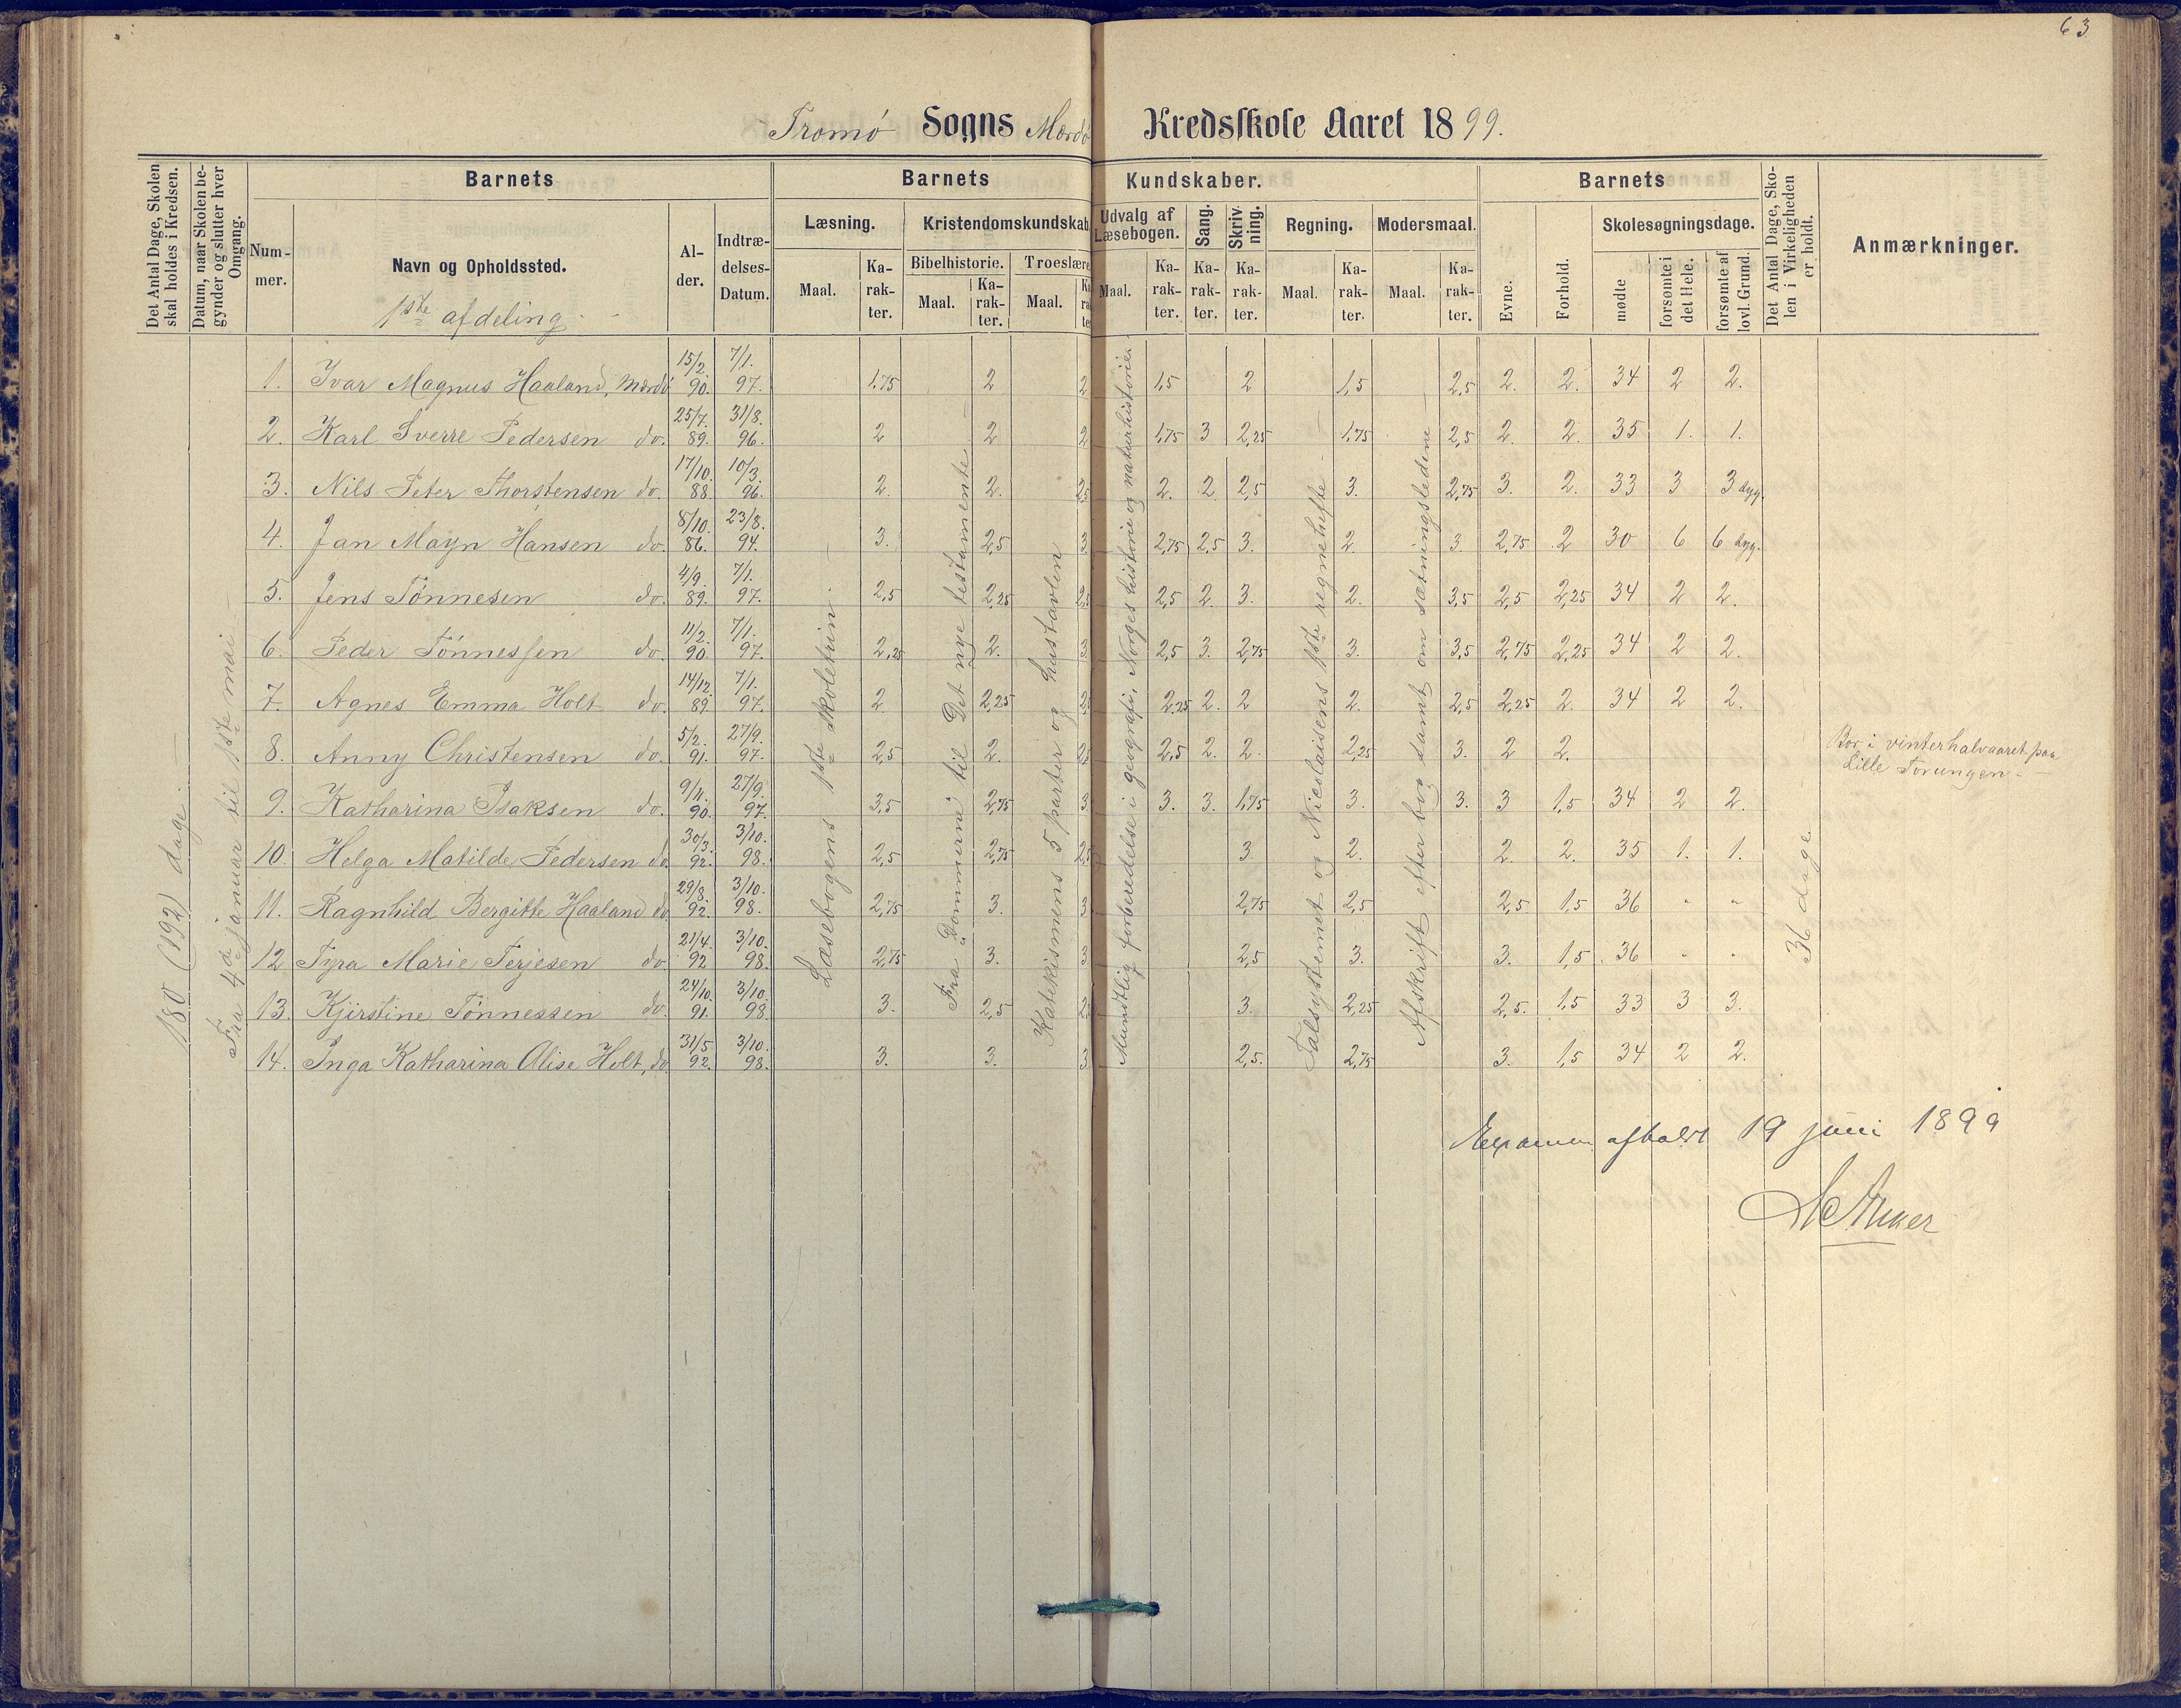 63
Tromø Sogns Mærdø Kredsskole Aaret 1899.
Det Antal Dage, Skolen skal holdes i Kredsen.
Datum, naar Skolen begynder og slutter hver Omgang.
Barnets
Barnets Kundskaber.
Barnets
Det Antal Dage, Skolen i Virkeligheden er holdt.
Anmærkninger.
Nummer.
Navn og Opholdssted.
Alder.
Indtrædelses-Datum.
Læsning.
Kristendomskundskab
Udvalg af Læsebogen.
Sang.
Skrivning.
Regning.
Modersmaal.
Evne.
Forhold.
Skolesøgningsdage.
Bibelhistorie.
Troeslære
Maal. Karakter. Maal. Karakter. Maal. Maal. Karakter. Karakter. Karakter. Maal. Karakter. Maal. Karakter.
mødte
forsømte i det Hele.
forsømte af lovl. Grund.
1ste afdeling
180 (192) dage.
Fra 4de januar til 1ste mai
Læsebogens 1ste skoletrin.
Fra Dommerne til Det nye testamente
Katekismens 5 parter og hustavlen
Mundtlig forberedelse i geografi, Norges historie og naturhistorie.
Talsystemet og Nicolaisens 1ste regnehefte
Afskrift efter bog samt om sætningsledene
36 dage
1. Ivar Magnus Haaland, Mærdø 15/2. 90. 7/1. 97. 1,75 2 2 1,5 2 1,5 2,5 2. 2. 34 2 2.
2. Karl Sverre Pedersen do. 25/7. 89. 31/8. 96. 2 2 2 1,75 3 2,25 1,75 2,5 2. 2. 35 1. 1.
3. Nils Peter Thorstensen do. 17/10. 88. 10/3. 96. 2. 2. 2,5 2. 2 2,5 3. 2,75 3. 2. 33 3 3 syg.
4. Jan Mayn Hansen do. 8/10. 86. 23/8. 94. 3. 2,5 3. 2,75 2,5 3. 2. 3. 2,75 2 30 6 6 syg.
5. Jens Tønnesen do. 4/9. 89. 7/1. 97. 2,5 2,25 2,5 2,5 2. 3. 2. 3,5 2,5 2,25 34 2 2.
6. Peder Tønnessen do. 11/2. 90. 7/1. 97. 2,25 2. 3 2,5 3. 2,75 3. 3,5 2,75 2,25 34 2 2.
7. Agnes Emma Holt do. 14/12. 89. 7/1. 97. 2 2,25 2,5 2,25 2. 2 2. 2,5 2,25 2. 34 2 2.
8. Anny Christensen do. 5/2. 91. 27/9. 97. 2,5 2. 2,5 2,5 2. 2. 2,25 3. 2 2. Bor i vinterhalvaaret paa
Lille Torungen.
9. Katharina Isaksen do. 9/11. 90. 27/9. 97. 3,5 2,75 3 3. 3. 1,75 3. 3. 3 1,5 34 2 2.
10. Helga Matilde Pedersen do 30/3. 92. 3/10. 98. 2,5 2,75 2,5 3. 2. 2. 2. 35 1. 1.
11. Ragnhild Bergitte Haaland do 29/8. 92. 3/10. 98. 2,75 3. 3 2,75 2,5 2,5. 1,5 36 " "
12 Tyra Marie Terjesen do 21/4. 92 3/10. 98. 2,75 3. 3 2,5 3. 3. 1,5 36 " "
13. Kjirstine Tønnessen do. 24/10. 91. 3/10. 98. 3. 2,5 2,5 3. 2,25 2,5. 1,5 33 3 3.
14. Inga Katharina Alise Holt, do. 31/5. 92. 3/10. 98. 3. 3. 3 2,5. 2,75 3. 1,5 34 2 2.
Examen afholdt 19 juni 1899